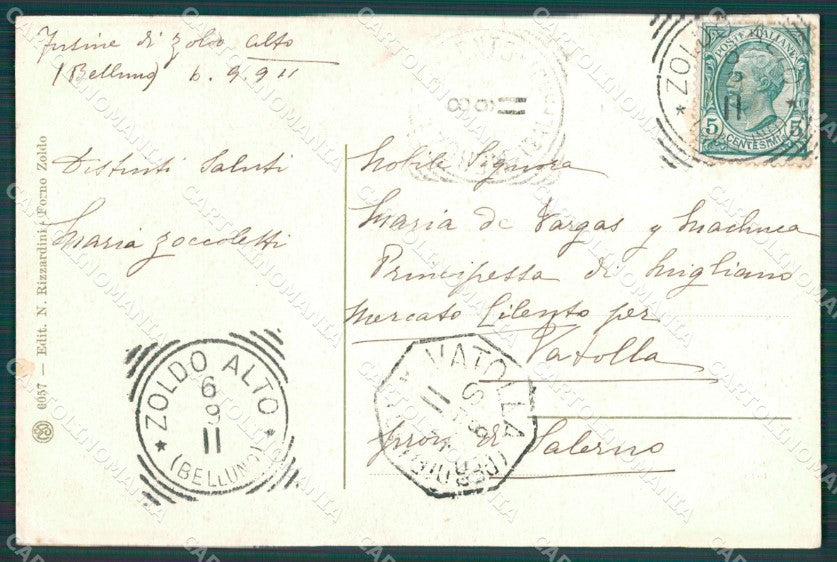 Fusine di Zoldo Alto
(Belluno) 6.9.911
Distinti Saluti
Maria Zoccoletti
Nobile Signora
Maria de Vargas y Machuca
Principessa di Migliano
Mercato Cilento per
Vatolla
prov. di Salerno
6057 — Edit. N. Rizzardini, Forno Zoldo
POSTE ITALIANE
5 5
CENTESIMI
ZOLDO ALTO
6
9
11
(BELLUNO)
ZOLDO ALTO
9
11
VATOLLA
11
CARTOLINOMANIA